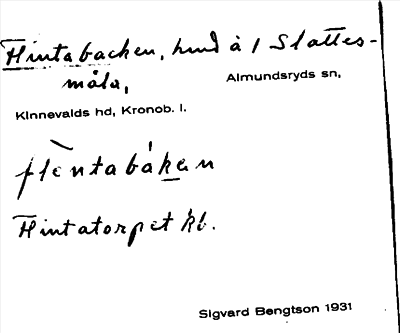 Flintabacken, hmd å 1 Slattes-
måla,
Almundsryds sn,
Kinnevalds hd, Kronob. l.
flèntabåkan
Flintatorpet kb.
Sigvard Bengtson 1931